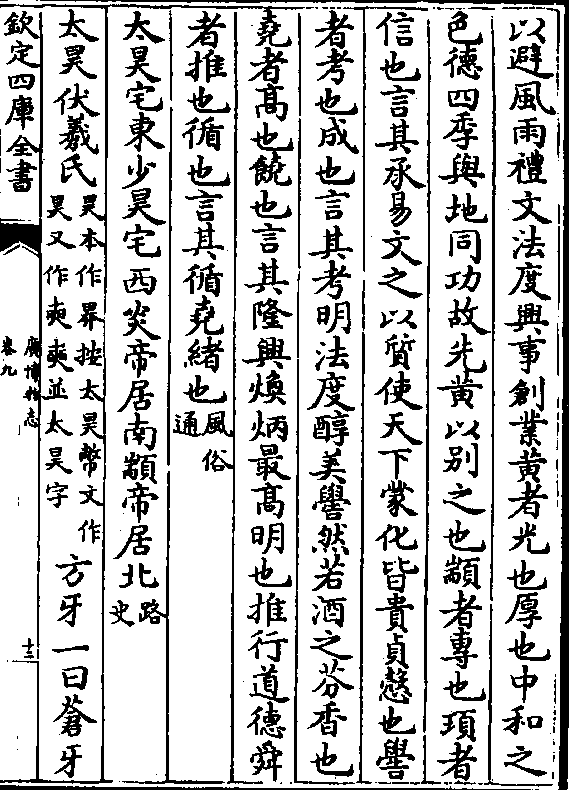 以避風雨禮文法度興事創業黄者光也厚也中和之
色德四季與地同功故先黄以别之也顓者專也頊者
信也言其承易文之以質使天下蒙化皆貴貞慤也嚳
者考也成也言其考明法度醇美嚳然若酒之芬香也
堯者髙也饒也言其隆興煥炳最髙明也推行道德舜
者推也循也言其循堯緒也風俗通
太昊宅東少昊宅西炎帝居南顓帝居北路史
太昊伏羲氏昊本作昦按太昊幣文作昊又作奭奭並太昊字方牙一曰蒼牙
欽定四庫全書
廣博物志
卷九
十三